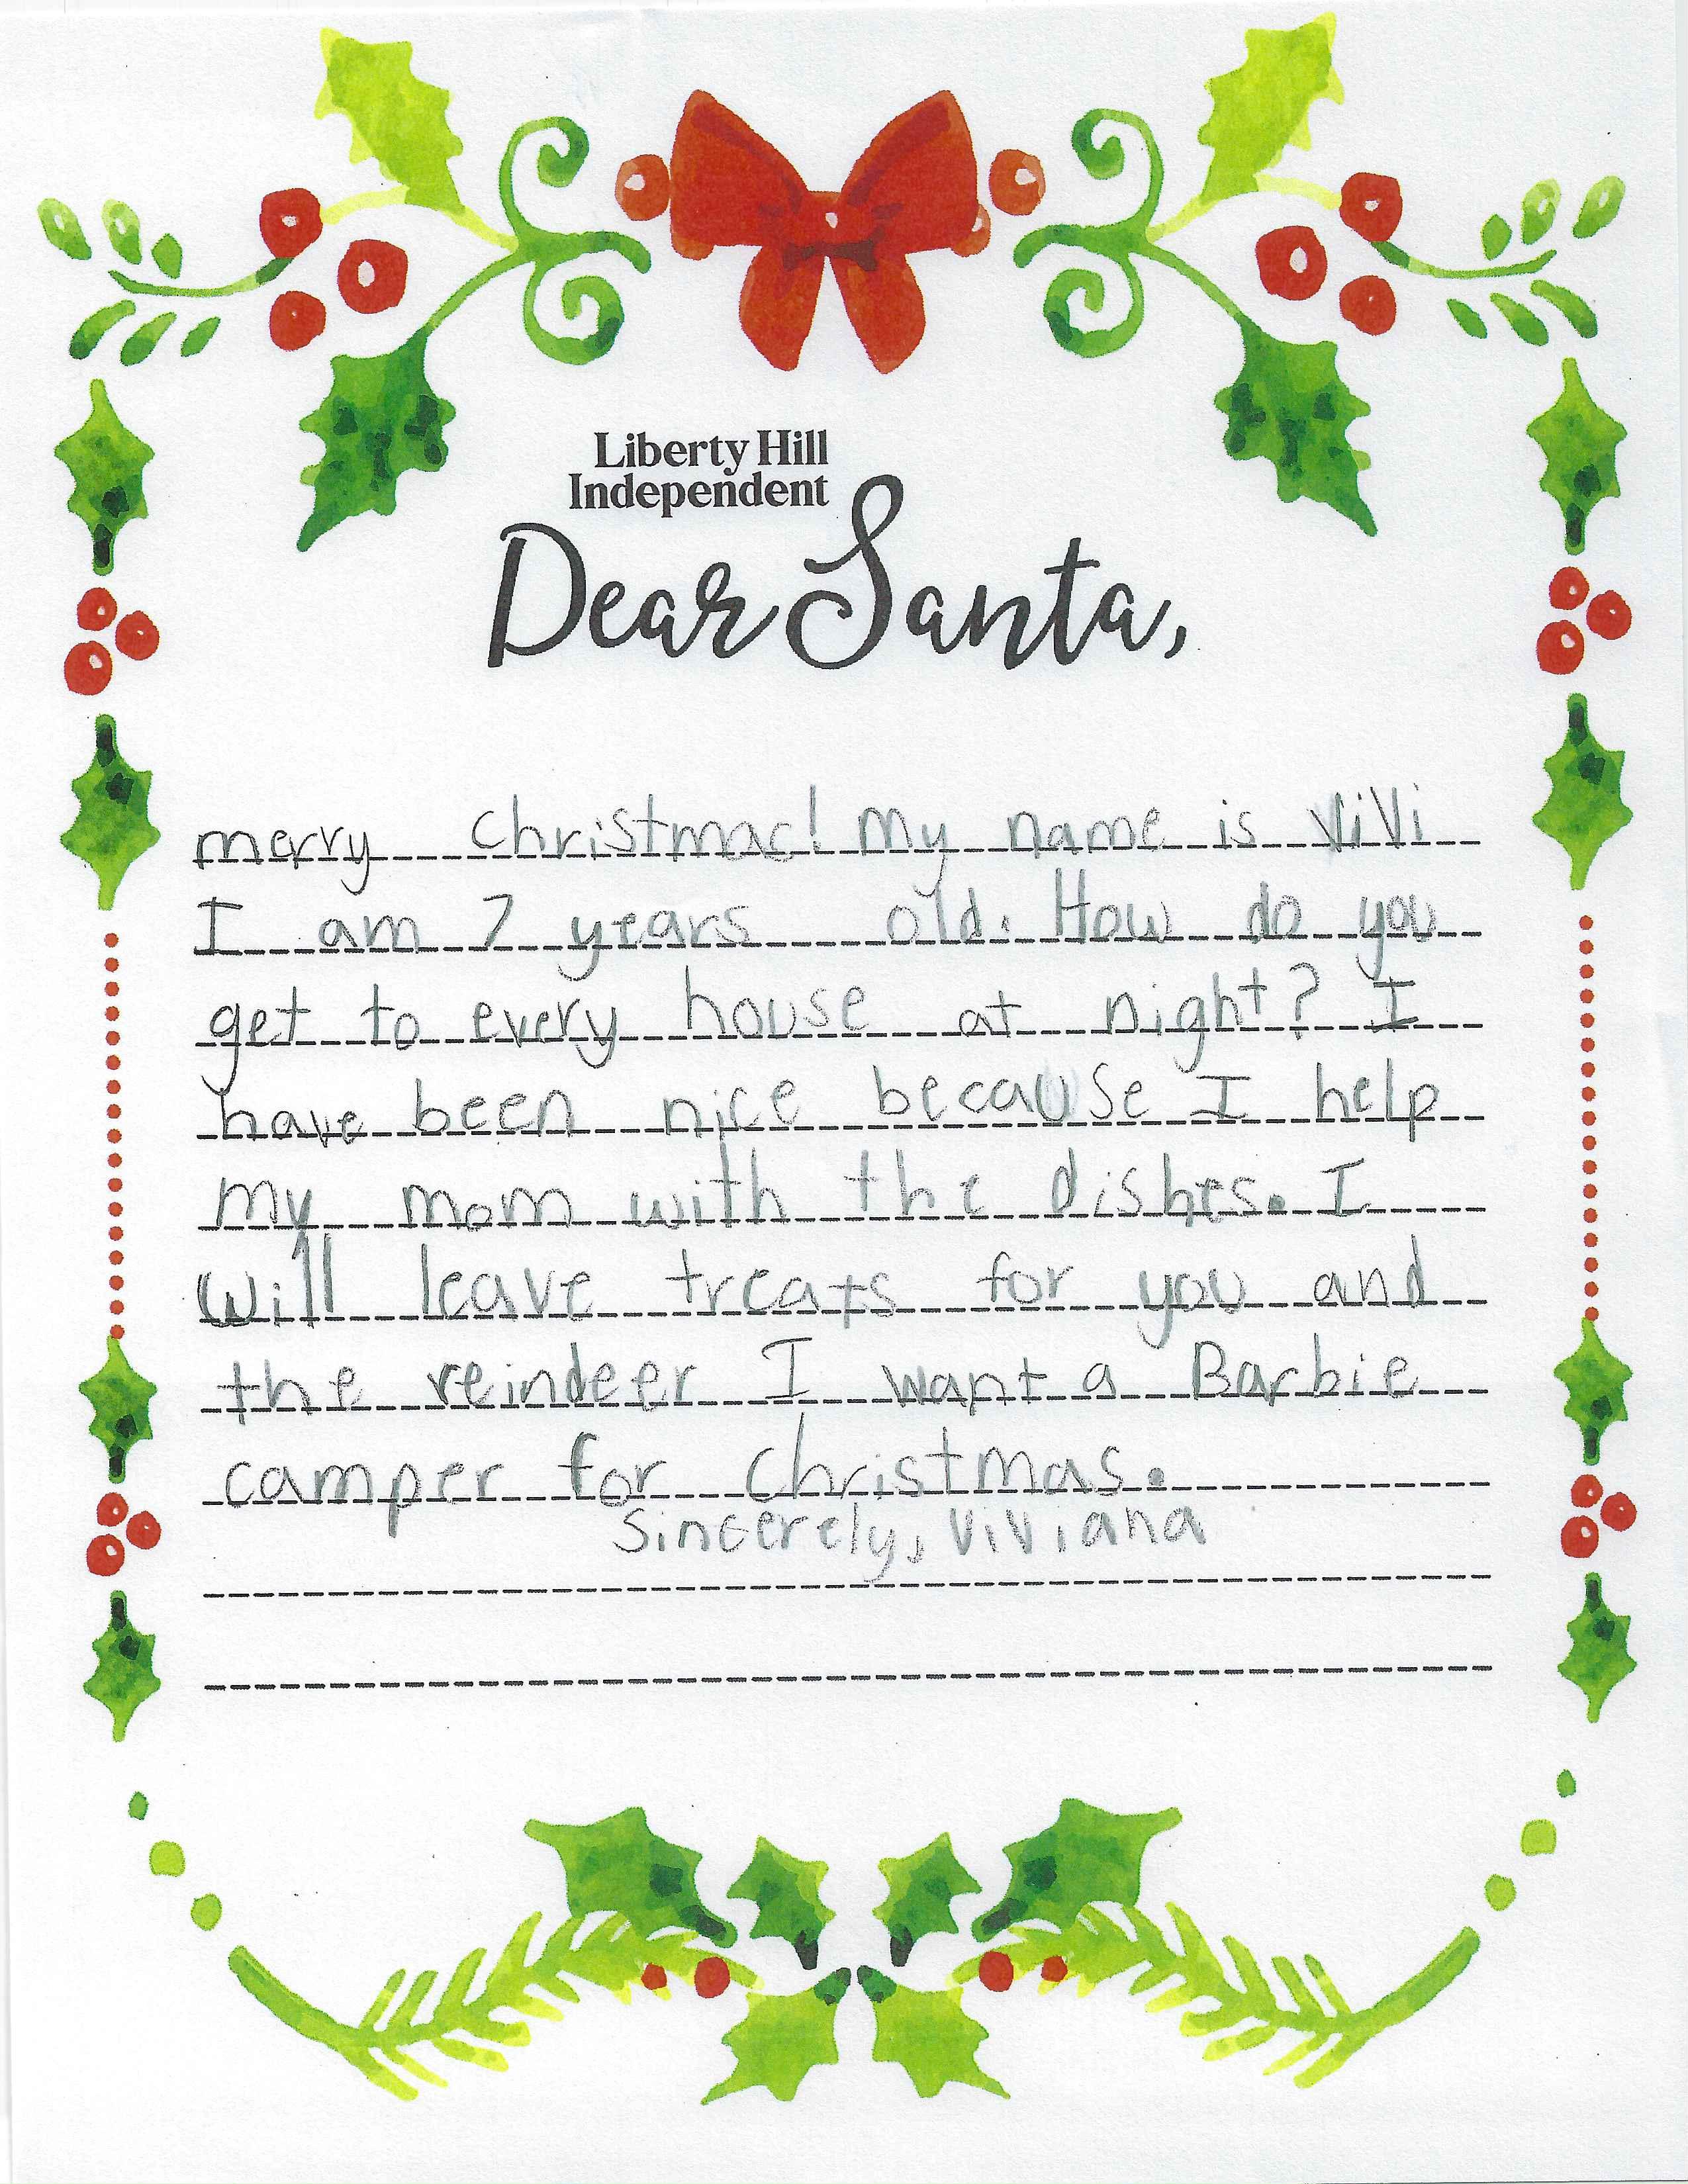 Liberty Hill
Independent
Dear Santa,
merry christmac! My name is ViVi
I am 7 years old. How do you
get to every house at night? I
have been nice because I help
my mom with the dishes. I
will leave treats for you and
the reindeer I want a Barbie
camper for christmas.
Sincerely, Viviana